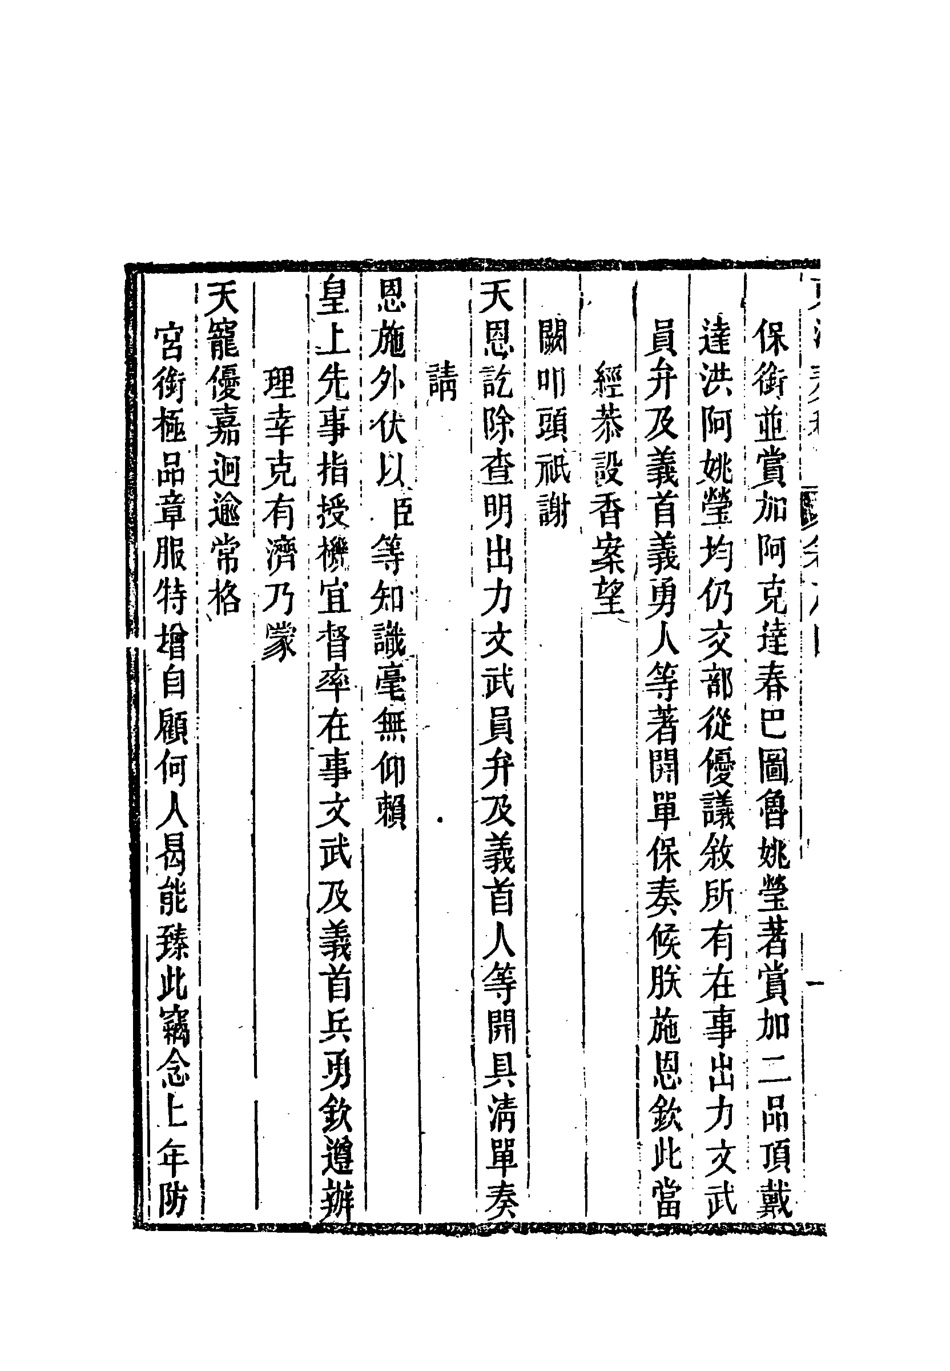 保銜並賞加阿克達春巴圖魯姚瑩著賞加二品頂戴
達洪阿姚瑩均仍交部從優議敘所有在事出力文武
員弁及義首義勇人等著開單保奏候朕施恩欽此當
經恭設香案望
闕叩頭祇謝
天恩訖除查明出力文武員弁及義首人等開具清單奏
請
恩施外伏以臣等知識毫無仰賴
皇上先事指授機宜督率在事文武及義首兵勇欽遵辦
理幸克有濟乃蒙
天寵優嘉迥逾常格
宮銜極品章服特增自顧何人曷能臻此竊念上年防